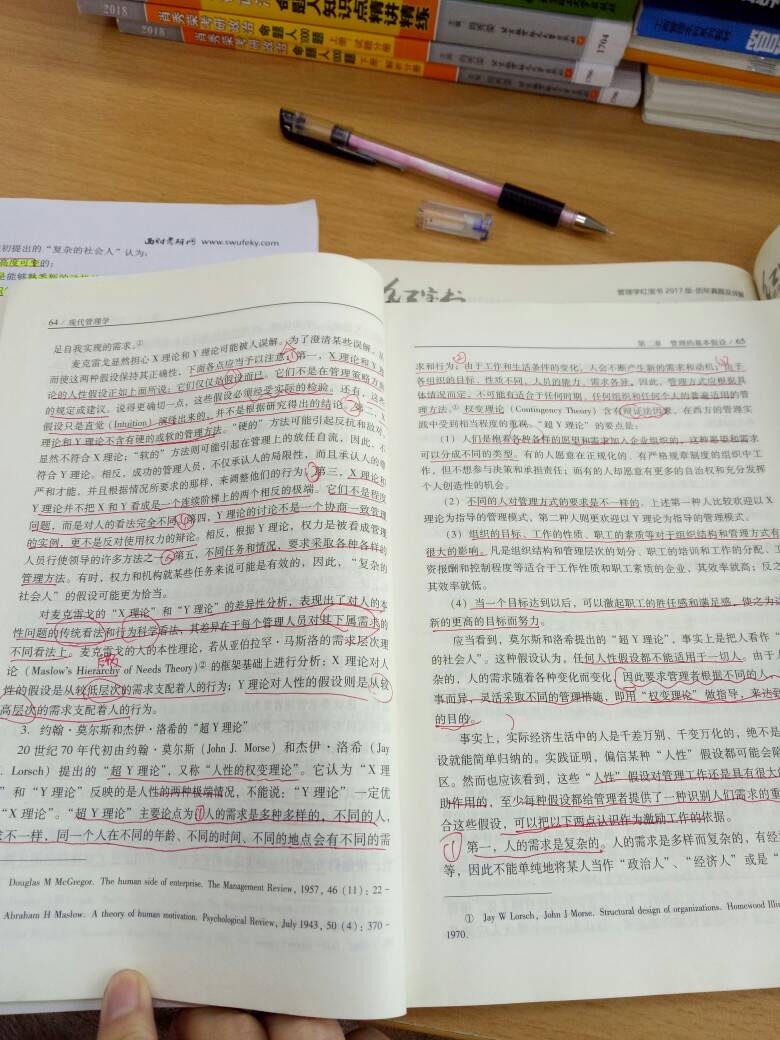 2018 肖秀荣考研政治 命题人 知识点精讲精练
2018 肖秀荣考研政治 命题人1000题 上册 试题分册
肖秀荣考研政治 命题人1000题 下册 解析分册
1704
1706
1706
工商管理系列教材
西财考研网 www.swufeky.com
初提出的“复杂的社会人”认为:
高度可变的:
是能够
红宝书
管理学红宝书 2017版·历年真题及详解
64 / 现代管理学
足自我实现的需求。①
麦克雷戈显然担心 X 理论和 Y 理论可能被人误解。为了澄清某些误解,
而使这两种假设保持其正确性,下面各点应当予以注意:第一,X 理论和 Y 理
论的人性假设正如上面所说:它们仅仅是假设而已。它们不是在管理策略方面
的规定或建议。说得更确切一点,这些假设必须经受实际的检验。还有,这些
假设只是直觉(Intuition)演绎出来的,并不是根据研究得出的结论。第二,X
理论和 Y 理论不含有硬的或软的管理方法。“硬的”方法可能引起反抗和敌对,
显然不符合 X 理论;“软的”方法则可能引起在管理上的放任自流,因此,不
符合 Y 理论。相反,成功的管理人员,不仅承认人的局限性,而且承认人的尊
严和才能,并且根据情况所要求的那样,来调整他们的行为。第三,X 理论和
Y 理论并不把 X 和 Y 看成是一个连续阶梯上的两个相反的极端。它们不是程度
问题,而是对人的看法完全不同。第四,Y 理论的讨论不是一个协商一致管理
的实例,更不是反对使用权力的辩论。相反,根据 Y 理论,权力是被看成管理
人员行使领导的许多方法之一。第五,不同任务和情况,要求采取各种各样的
管理方法。有时,权力和机构就某些任务来说可能是有效的,因此,“复杂的
社会人”的假设可能更为恰当。
对麦克雷戈的“X 理论”和“Y 理论”的差异性分析,表现出了对人的本
性问题的传统看法和行为科学看法,其差异在于每个管理人员对其下属需求的
不同看法上。麦克雷戈的人的本性理论,若从亚伯拉罕·马斯洛的需求层次理
论(Maslow's Hierarchy of Needs Theory)② 的框架基础上进行分析:X 理论对人
性的假设是从较低层次的需求支配着人的行为;Y 理论对人性的假设则是从较
高层次的需求支配着人的行为。
3. 约翰·莫尔斯和杰伊·洛希的“超 Y 理论”
20 世纪 70 年代初由约翰·莫尔斯(John J. Morse)和杰伊·洛希(Jay
. Lorsch)提出的“超 Y 理论”,又称“人性的权变理论”。它认为“X 理
”和“Y 理论”反映的是人性的两种极端情况,不能说:“Y 理论”一定优
“X 理论”。“超 Y 理论”主要论点为①人的需求是多种多样的,不同的人,
求不一样,同一个人在不同的年龄、不同的时间、不同的地点会有不同的需
Douglas M McGregor. The human side of enterprise. The Management Review, 1957, 46 (11): 22-
Abraham H Maslow. A theory of human motivation. Psychological Review, July 1943, 50 (4): 370-
第二章 管理的基本假设 / 65
②
求和行为;由于工作和生活条件的变化,人会不断产生新的需求和动机。由于
各组织的目标、性质不同,人员的能力、需求各异,因此,管理方式应根据具
体情况而定,不可能有适合于任何时期、任何组织和任何个人的普遍适用的管
理方法。① 权变理论(Contingency Theory)含有辩证法因素,在西方的管理实
践中受到相当程度的重视。“超 Y 理论”的要点是:
(1)人们是抱着各种各样的愿望和需求加入企业组织的,这种愿望和需求
可以分成不同的类型。有的人愿意在正规化的、有严格规章制度的组织中工
作,但不想参与决策和承担责任;而有的人却愿意有更多的自治权和充分发挥
个人创造性的机会。
(2)不同的人对管理方式的要求是不一样的。上述第一种人比较欢迎以 X
理论为指导的管理模式,第二种人则更欢迎以 Y 理论为指导的管理模式。
(3)组织的目标、工作的性质、职工的素质等对于组织结构和管理方式有
很大的影响。凡是组织结构和管理层次的划分、职工的培训和工作的分配、工
资报酬和控制程度等适合于工作性质和职工素质的企业,其效率就高;反之
其效率就低。
(4)当一个目标达到以后,可以激起职工的胜任感和满足感,使之为达
新的更高的目标而努力。
应当看到,莫尔斯和洛希提出的“超 Y 理论”,事实上是把人看作“
的社会人”。这种假设认为,任何人性假设都不能适用于一切人。由于人
杂的,人的需求随着各种变化而变化,因此要求管理者根据不同的人、
事而异,灵活采取不同的管理措施,即用“权变理论”做指导,来达到
的目的。
事实上,实际经济生活中的人是千差万别、千变万化的,绝不是
设就能简单归纳的。实践证明,偏信某种“人性”假设都可能会陷
区。然而也应该看到,这些“人性”假设对管理工作还是具有很大的
助作用的,至少每种假设都给管理者提供了一种识别人们需求的重
合这些假设,可以把以下两点认识作为激励工作的依据。
① 第一,人的需求是复杂的。人的需求是多样而复杂的,有经
等,因此不能单纯地将某人当作“政治人”、“经济人”或是“
① Jay W Lorsch, John J Morse. Structural design of organizations. Homewood Illi
1970.